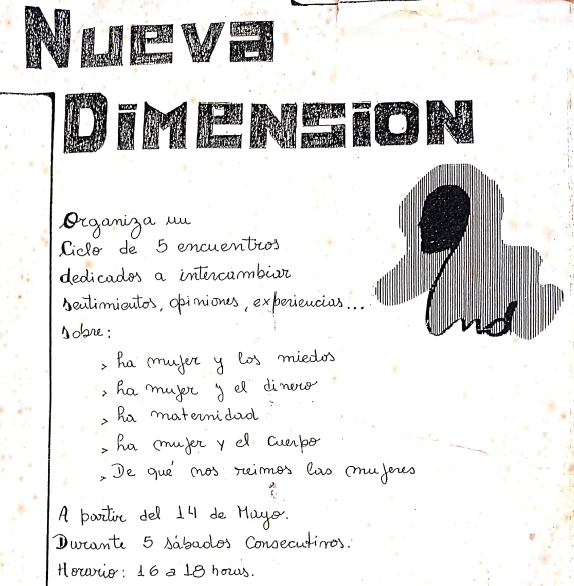 NUEVA
DIMENSION
Organiza un
Ciclo de 5 encuentros
dedicados a intercambiar
sentimientos, opiniones, experiencias...
sobre:
> La mujer y los miedos
> La mujer y el dinero
> La maternidad
> La mujer y el cuerpo
> De qué nos reimos las mujeres
A partir del 14 de Mayo.
Durante 5 sábados Consecutivos.
Horario: 16 a 18 horas.
nd